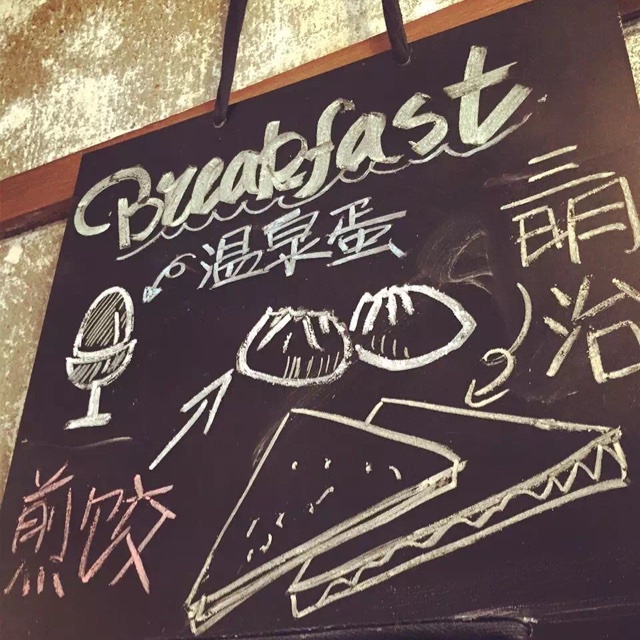 Breakfast
温泉蛋
三明
治
煎饺